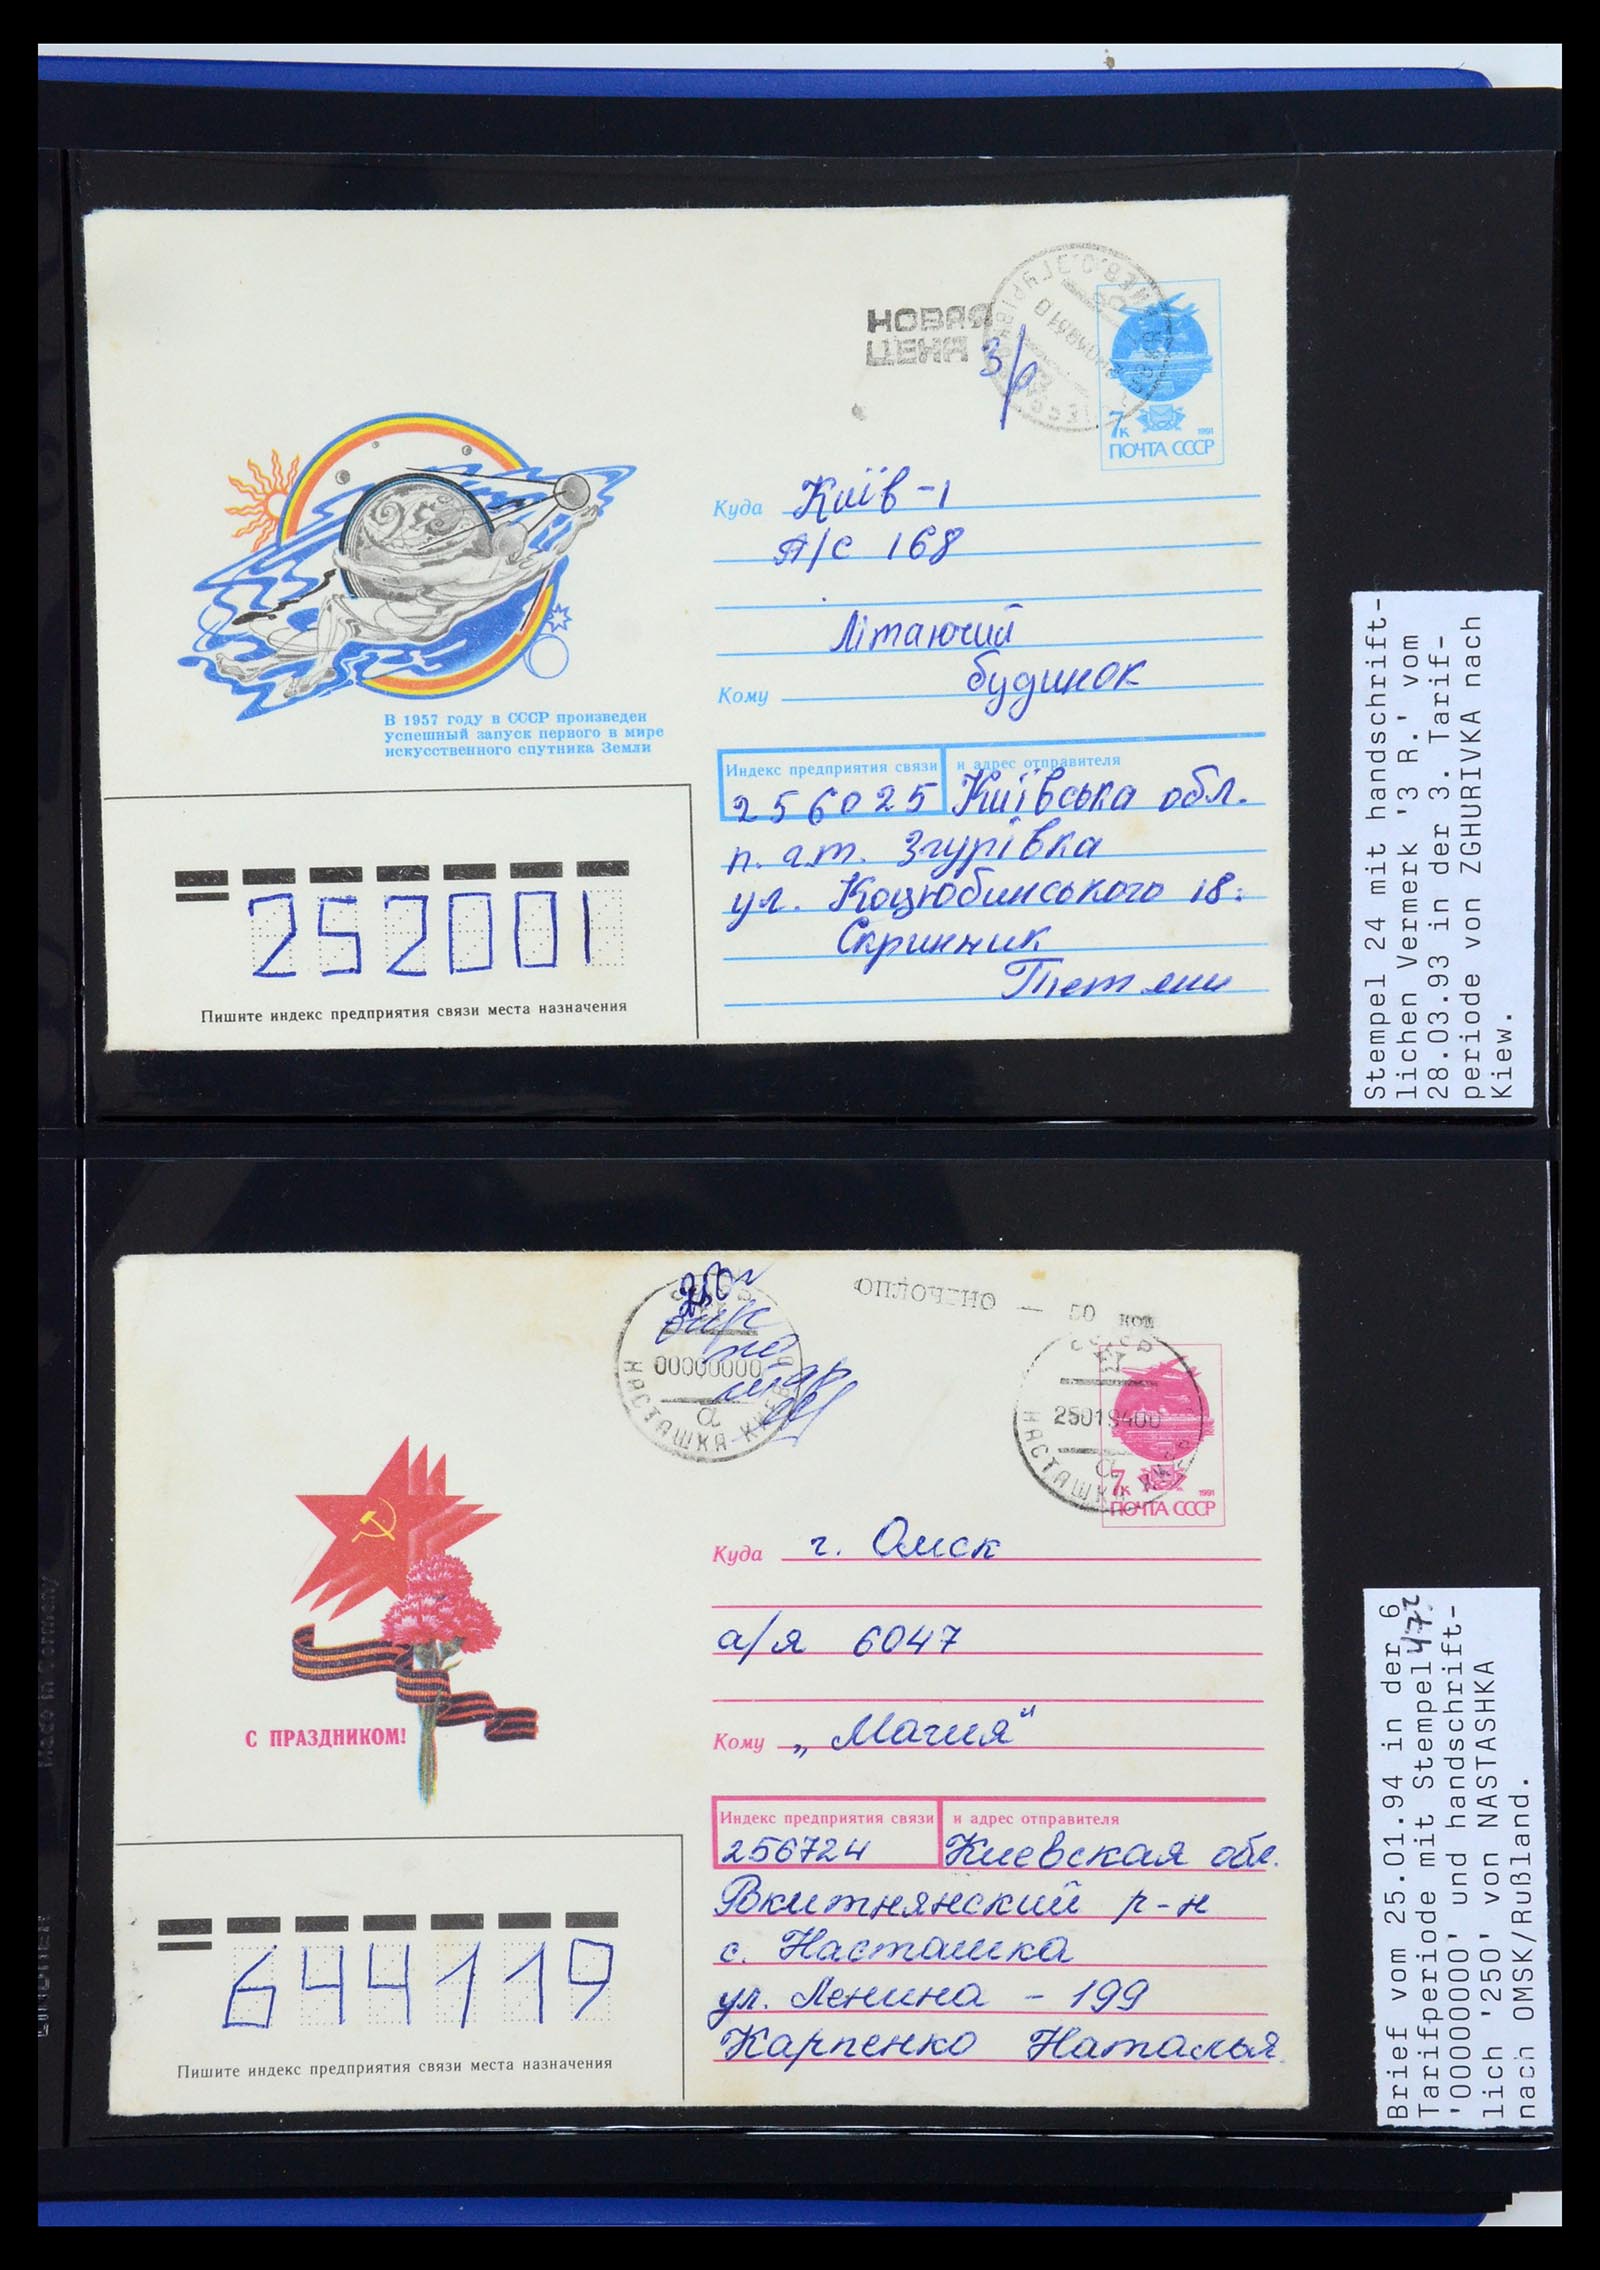 НОВАЯ
ЦЕНА
3/р
7к
1991
ПОЧТА СССР
Куда Київ-1
А/С 168
Літаючий
Кому будинок
В 1957 году в СССР произведен
успешный запуск первого в мире
искусственного спутника Земли
Индекс предприятия связи и адрес отправителя
256025 Київська обл.
п. г.т. Згурівка
ул. Коцюбинського 18.
Скринник
252001
Пишите индекс предприятия связи места назначения
Stempel 24 mit handschrift-
lichen Vermerk '3 R.' vom
28.03.93 in der 3. Tarif-
periode von ZGHURIVKA nach
Kiew.
250
ОПЛОЧЕНО — 50 коп
00000000
а
НАСТАШКА КИЕВ
СССР
2501940
а
НАСТАШКА
7к
1991
ПОЧТА СССР
Куда г. Омск
а/я 6047
Кому „Магия“
С ПРАЗДНИКОМ!
Индекс предприятия связи и адрес отправителя
256724 Киевская обл.
р-н
с. Насташка
ул. Ленина - 199
Карпенко Наталья
644119
Пишите индекс предприятия связи места назначения
Brief vom 25.01.94 in der 6
Tarifperiode mit Stempel
'00000000' und handschrift-
lich '250' von NASTASHKA
nach OMSK/Rußland.
Made in Germany